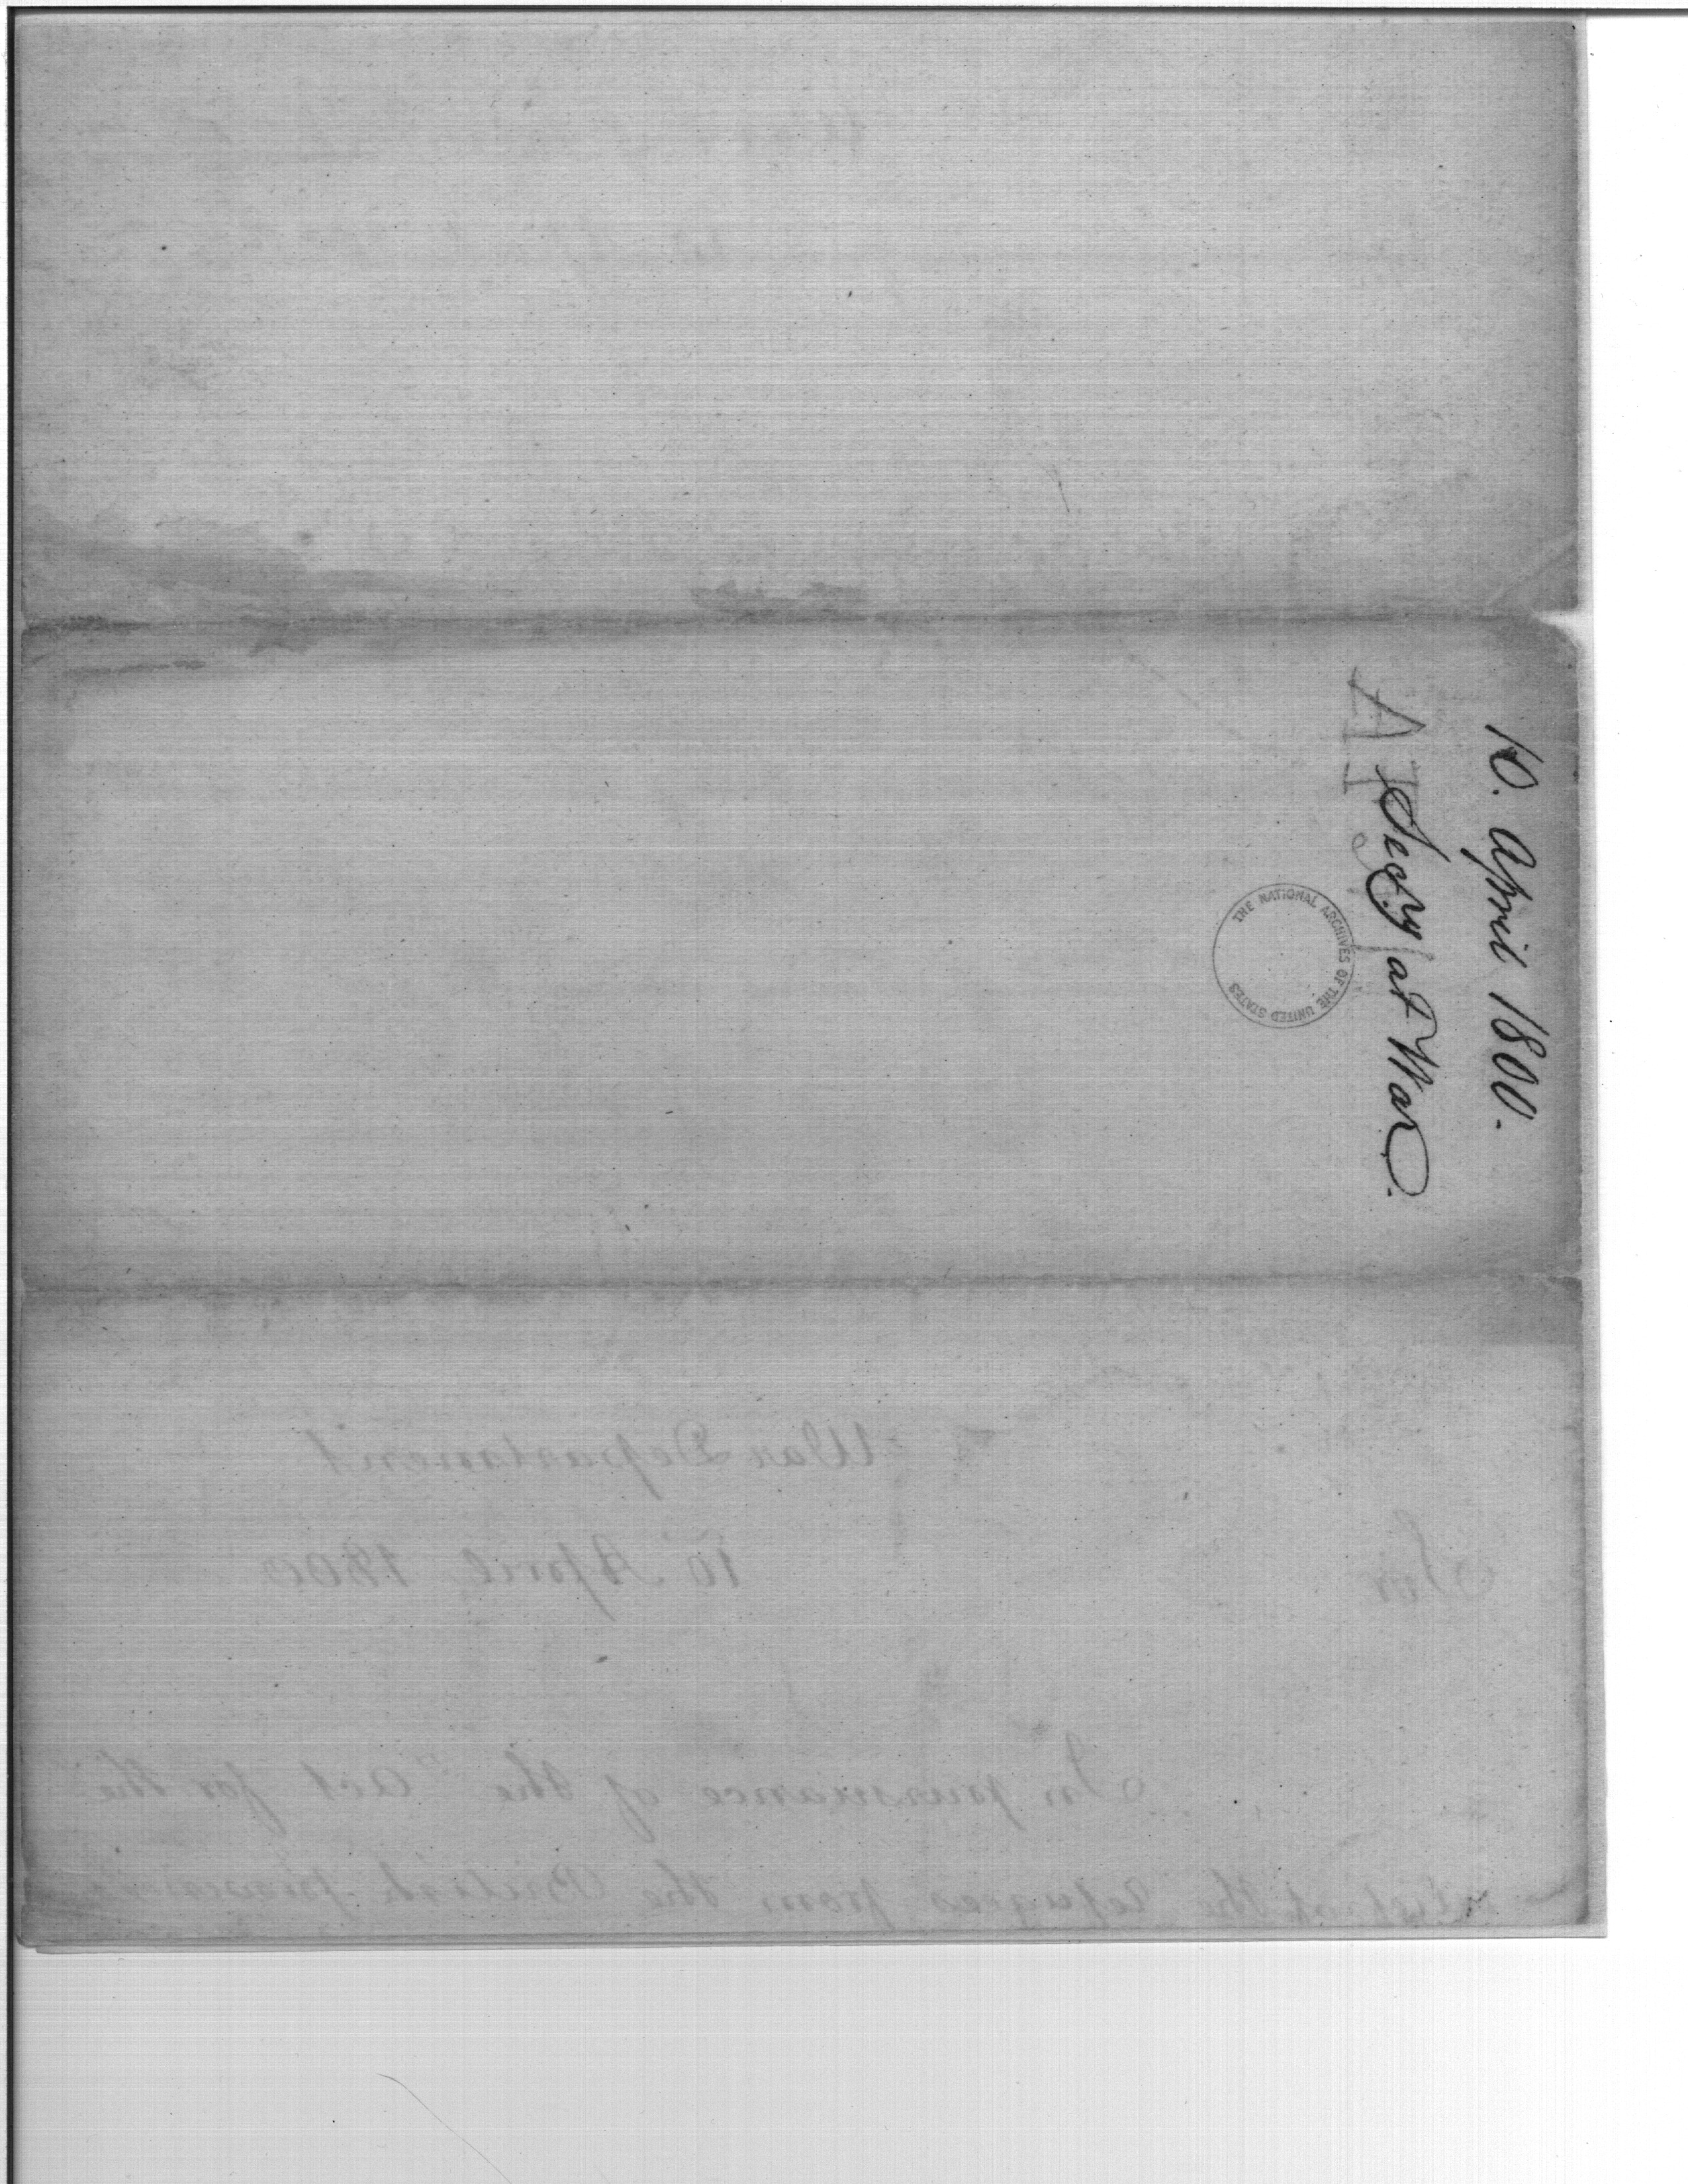 10. April 1800.
Secy at War.
THE NATIONAL ARCHIVES OF THE UNITED STATES
War Department
Sir 10 April 1800
In pursuance of the "act for the
the Refugees from the British